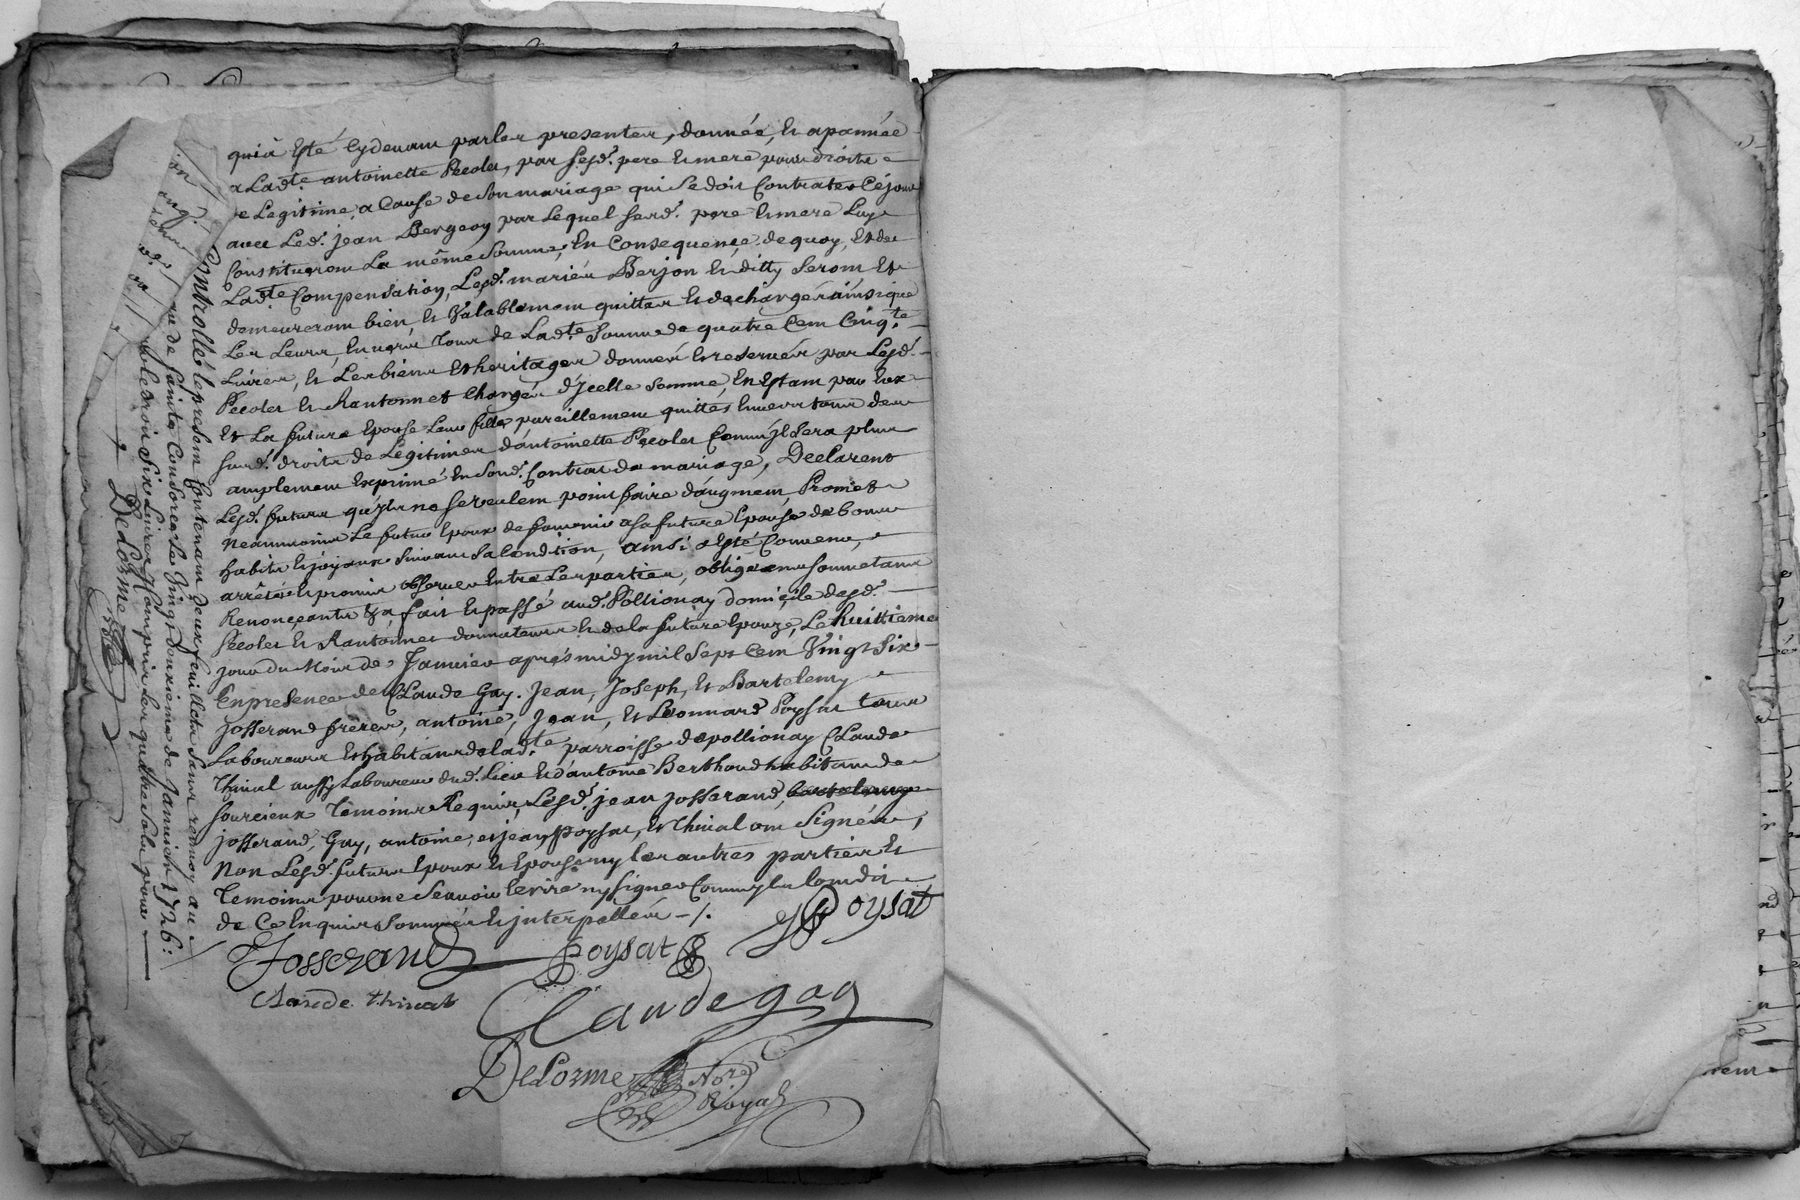 qui a Esté Cydevant par les presentes, donnée, Et apannée
a Ladte antoinette Pecolet, par sesd. pere Et mere pour droits
de Legitime, a Cause de Son mariage qui Se doit Contracter Céjour
avec Led. jean Bergeon par Lequel sesd. pere Et mere Luy
Constitueront La même Somme, En Consequence de quoy, Et de
Ladte Compensation, Lesd. mariéz Berjon Et ditty Seront Et
demeureront bien Et Valablement quittes Et dechargés ainsi que
Les Leurs, Envers Tous de Ladte Somme de quatre Cent Cinqte
Livres, Et Les biens Et heritages donnés Et reservés par Lesd.
Pecolet Et Rantonnet Chargés d'Jcelle Somme, En Estant par Eux
Et La future Epouse Leur fille pareillement quittes Envers tous des
susd. droits de Legitimes d'antoinette Pecolet Comm'jl Sera plus
amplement Exprimé En Sond. Contrat de mariage, Declarent
Lesd. futurs qu'ils ne se veulent point faire d'augment, Promet
Neantmoins Le futur Epoux de fournir a sa future Epouse de bons
habits Et joyaux Suivant Sa Condition, ainsi a Esté Convenu,
arrêté Et promis observer Entre Les parties, obligeant soumetant
Renonçants &a, fait Et passé aud. Pollionay domicile desd.
Pecolet Et Rantonnet donnateurs Et de la future Epouze, Le huittieme
jour du Mois de Janvier aprés midy mil Sept Cent Vingt Six
En presence de Claude Gay. Jean, Joseph, Et Bartelemy
Josserand freres, antoine, Jean, Et Leonnard Poysat tous
Laboureurs Et habitants de Ladte parroisse de pollionay Claude
Thival aussy Laboureur dud. Lieu Et d'antoine Berthoud habitant de
sourcieux Temoins Requis, Lesd. jean Josserand, bartelemy
josserand, Gay, antoine, et jean Poysat, Et Thival ont Signés,
Non Lesd. futurs Epoux Et Epouse ny les autres parties Et
Temoins pour ne Scavoir Ecrire ny signer Comm'jls lont dit
de Ce Enquis Sommés Et jnterpellés -/.
Josserand Poysat J Poysat
Claude thival
Claude gay
DeLorme Nore
Royal
Controllé le present Contenant deux feuillets Sans renvoy au
de Sainte Consorce Le Vingt douxieme de Janvier 1726:
le droit Six Livres Compris Les quattre Sols pour
DeLorme